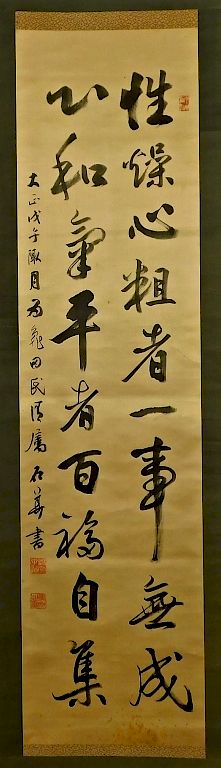 性燥心粗者一事無成
心和氣平者百福自集
大正戊午陬月為亀田民清属 石華書